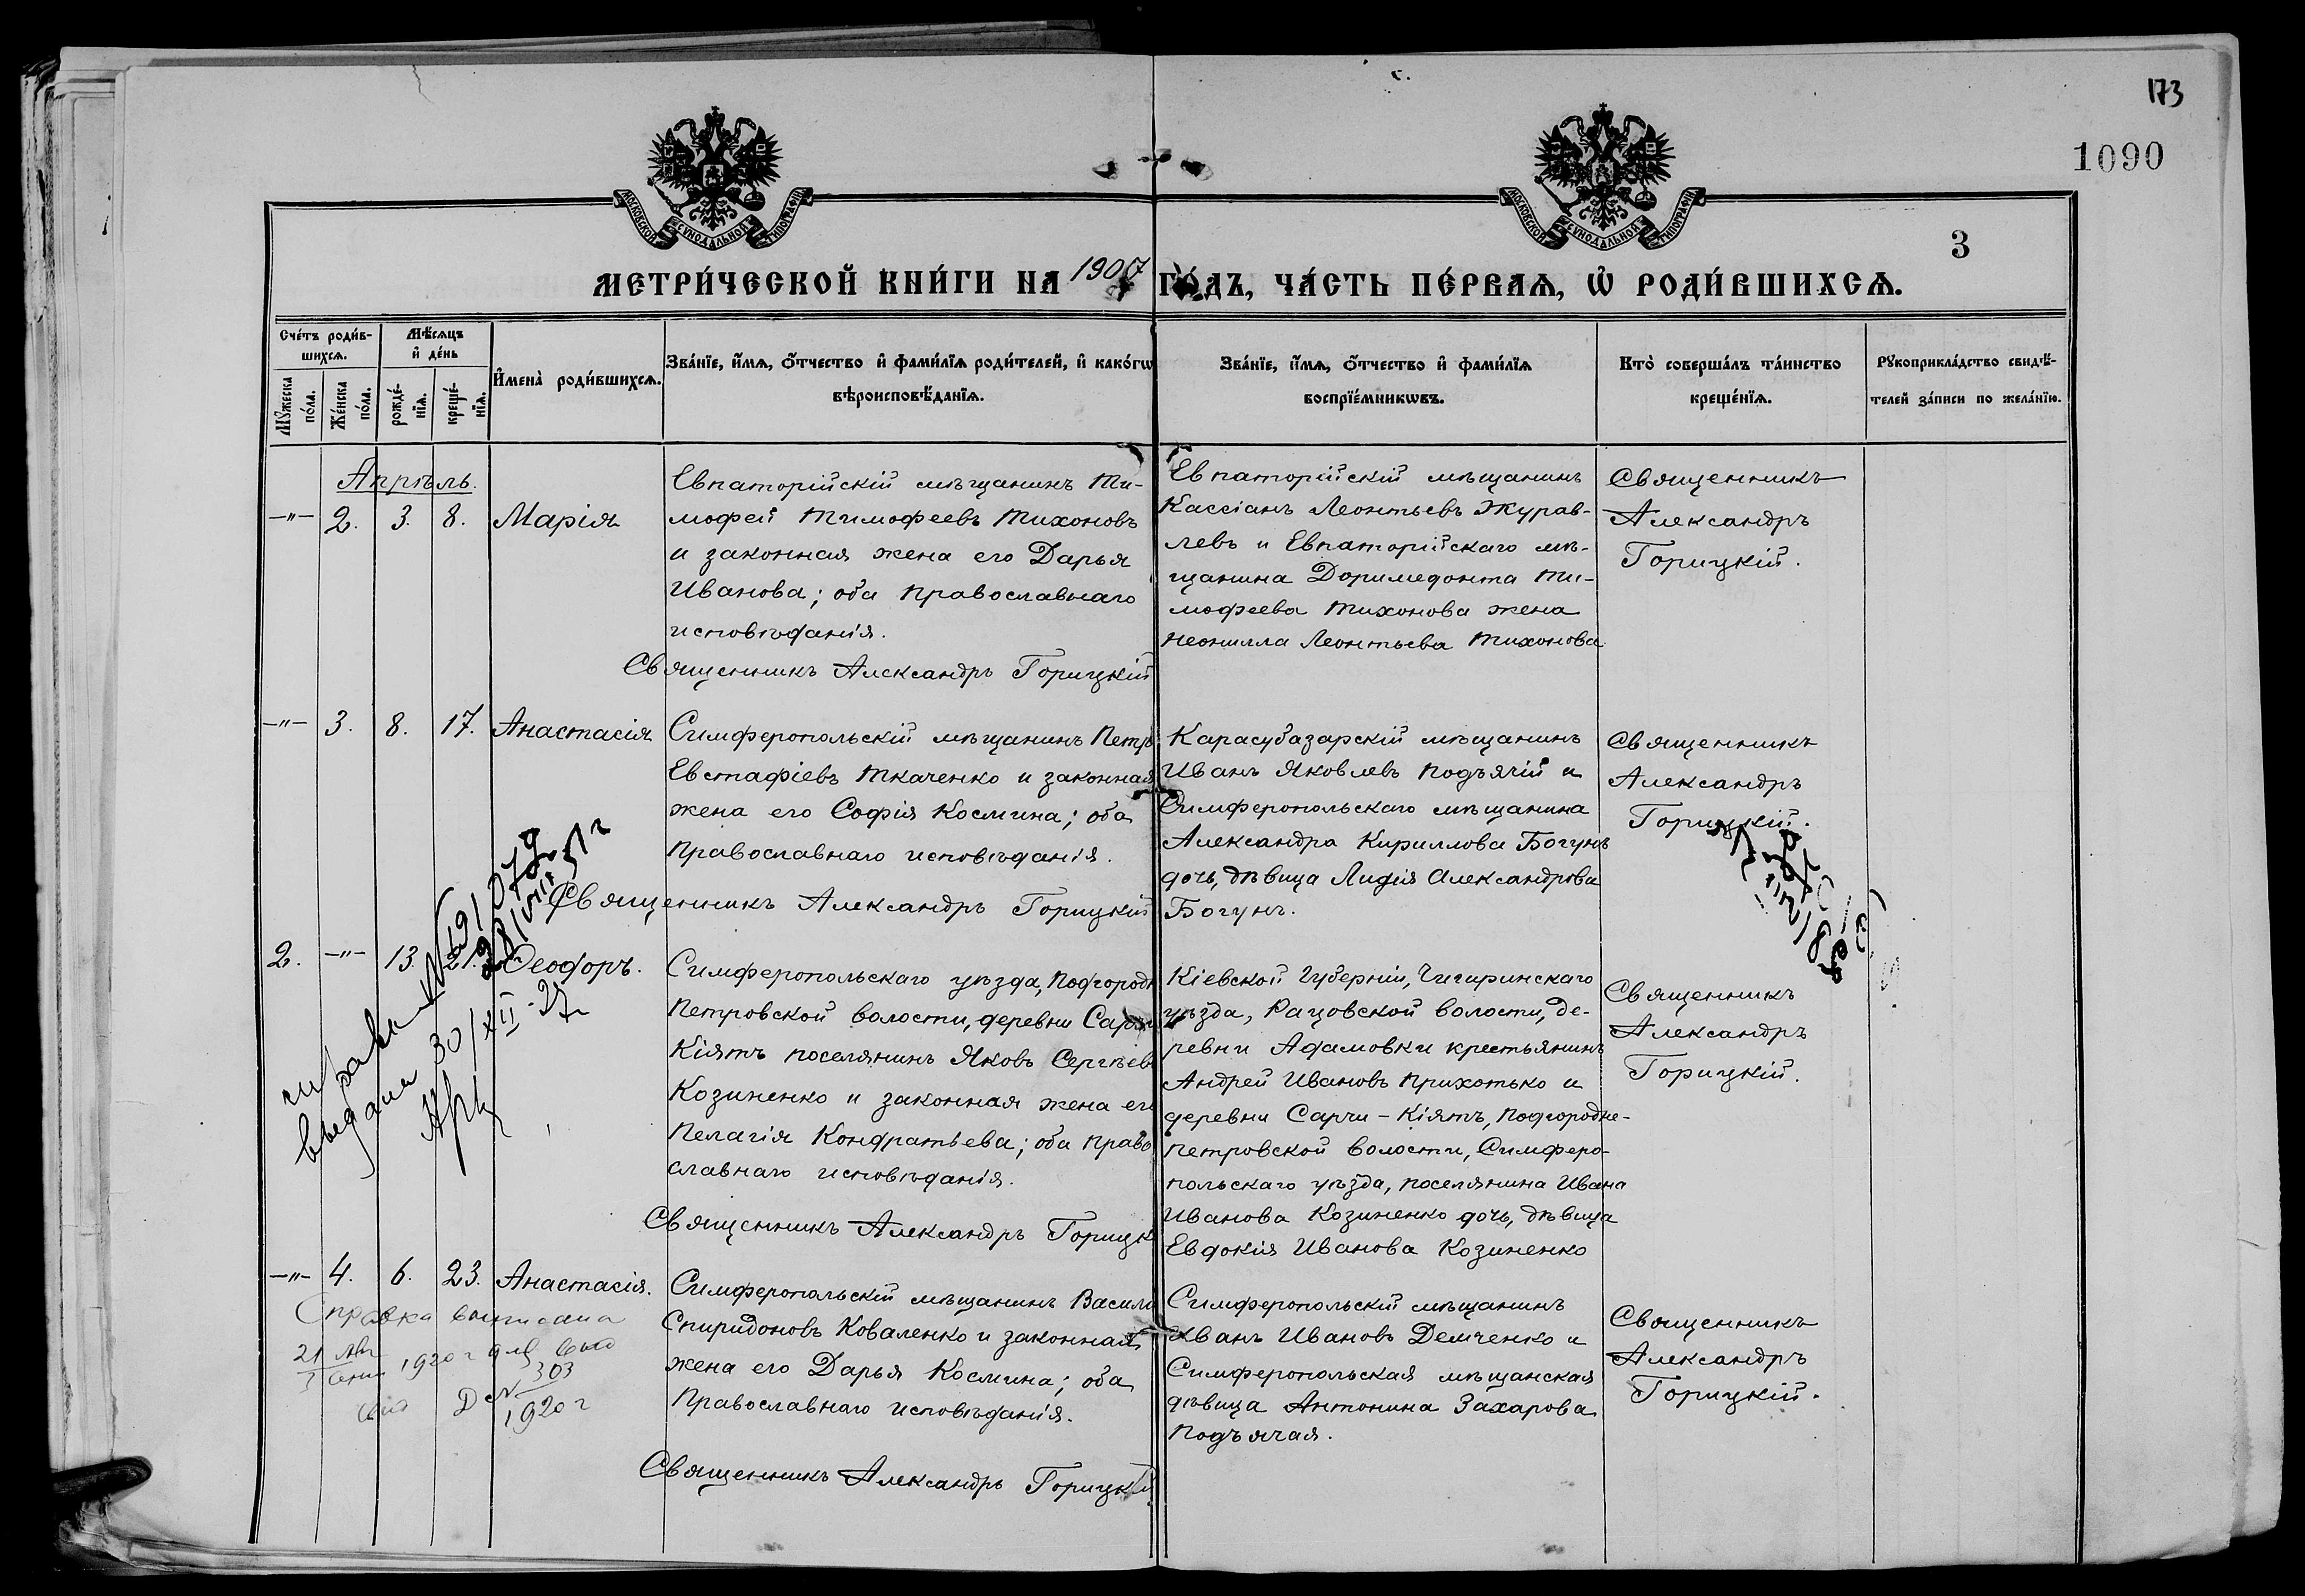 173
1090
3
МОСКОВСКОЙ СѴНОДАЛЬНОЙ ТИПОГРАФІИ
МОСКОВСКОЙ СѴНОДАЛЬНОЙ ТИПОГРАФІИ
МЕТРИ́ЧЕСКОЙ КНИ́ГИ НА 1907 ГО́ДЪ, ЧА́СТЬ ПЕ́РВАѦ, Ѡ҆ РОДИ́ВШИХСѦ.
Сче́тъ роди́в-
шихсѧ.
Мꙋжеска по́ла.
Же́нска по́ла.
Мѣ́сѧцъ и҆ де́нь
рожде́-нїѧ.
креще́-нїѧ.
И҆мена̀ роди́вшихсѧ.
Зва́нїе, и҆́мѧ, ѻ҆́тчество и҆ фами́лїѧ роди́телей, и҆ како́гѡ
вѣроисповѣ́данїѧ.
Зва́нїе, и҆́мѧ, ѻ҆́тчество и҆ фами́лїѧ
воспрїе́мникѡвъ.
Кто̀ соверша́лъ та́инство
креще́нїѧ.
Рꙋкоприкла́дство свидѣ́-
телей за́писи по жела́нїю.
Апрѣль.
-"- 2. 3. 8. Марія
Евпаторійскій мѣщанинъ Ти-
мофей Тимофеевъ Тихоновъ
и законная жена его Дарья
Иванова; оба православнаго
исповѣданія.
Священникъ Александръ Горицкій
Евпаторійскій мѣщанинъ
Кассіанъ Леонтьевъ Журав-
левъ и Евпаторійскаго мѣ-
щанина Доримедонта Ти-
мофеева Тихонова жена
Неонилла Леонтьева Тихонова
Священникъ
Александръ
Горицкій.
-"- 3. 8. 17. Анастасія
Симферопольскій мѣщанинъ Петръ
Евстафіевъ Ткаченко и законная
жена его Софія Космина; оба
православнаго исповѣданія.
Священникъ Александръ Горицкій
Карасубазарскій мѣщанинъ
Иванъ Яковлевъ Подъячій и
Симферопольскаго мѣщанина
Александра Кириллова Богунъ
дочь, дѣвица Лидія Александрова
Богунъ.
Священникъ
Александръ
Горицкій.
2. -"- 13. 21. Ѳеодоръ.
Симферопольскаго уѣзда, Подгородн
Петровской волости, деревни Сарчи
Кіятъ поселянинъ Яковъ Сергѣевъ
Козиненко и законная жена его
Пелагія Кондратьева; оба право
славнаго исповѣданія.
Священникъ Александръ Горицк
Кіевской Губерніи, Чигиринскаго
уѣзда, Рацовской волости, де-
ревни Адамовки крестьянинъ
Андрей Ивановъ Прихотько и
деревни Сарчи-Кіятъ, Подгородне-
Петровской волости, Симферо-
польскаго уѣзда, поселянина Ивана
Иванова Козиненко дочь, дѣвица
Евдокія Иванова Козиненко
Священникъ
Александръ
Горицкій.
справка
выдана 30/XII-27г
-"- 4. 6. 23. Анастасія.
Симферопольскій мѣщанинъ Васили
Спиридоновъ Коваленко и законная
жена его Дарья Космина; оба
Православнаго исповѣданія.
Священникъ Александръ Горицкій
Симферопольскій мѣщанинъ
Иванъ Ивановъ Демченко и
Симферопольская мѣщанская
дѣвица Антонина Захарова
Подъячая.
Священникъ
Александръ
Горицкій.
Справка выписана
21 Авг
1920 г
№ 303
1920 г